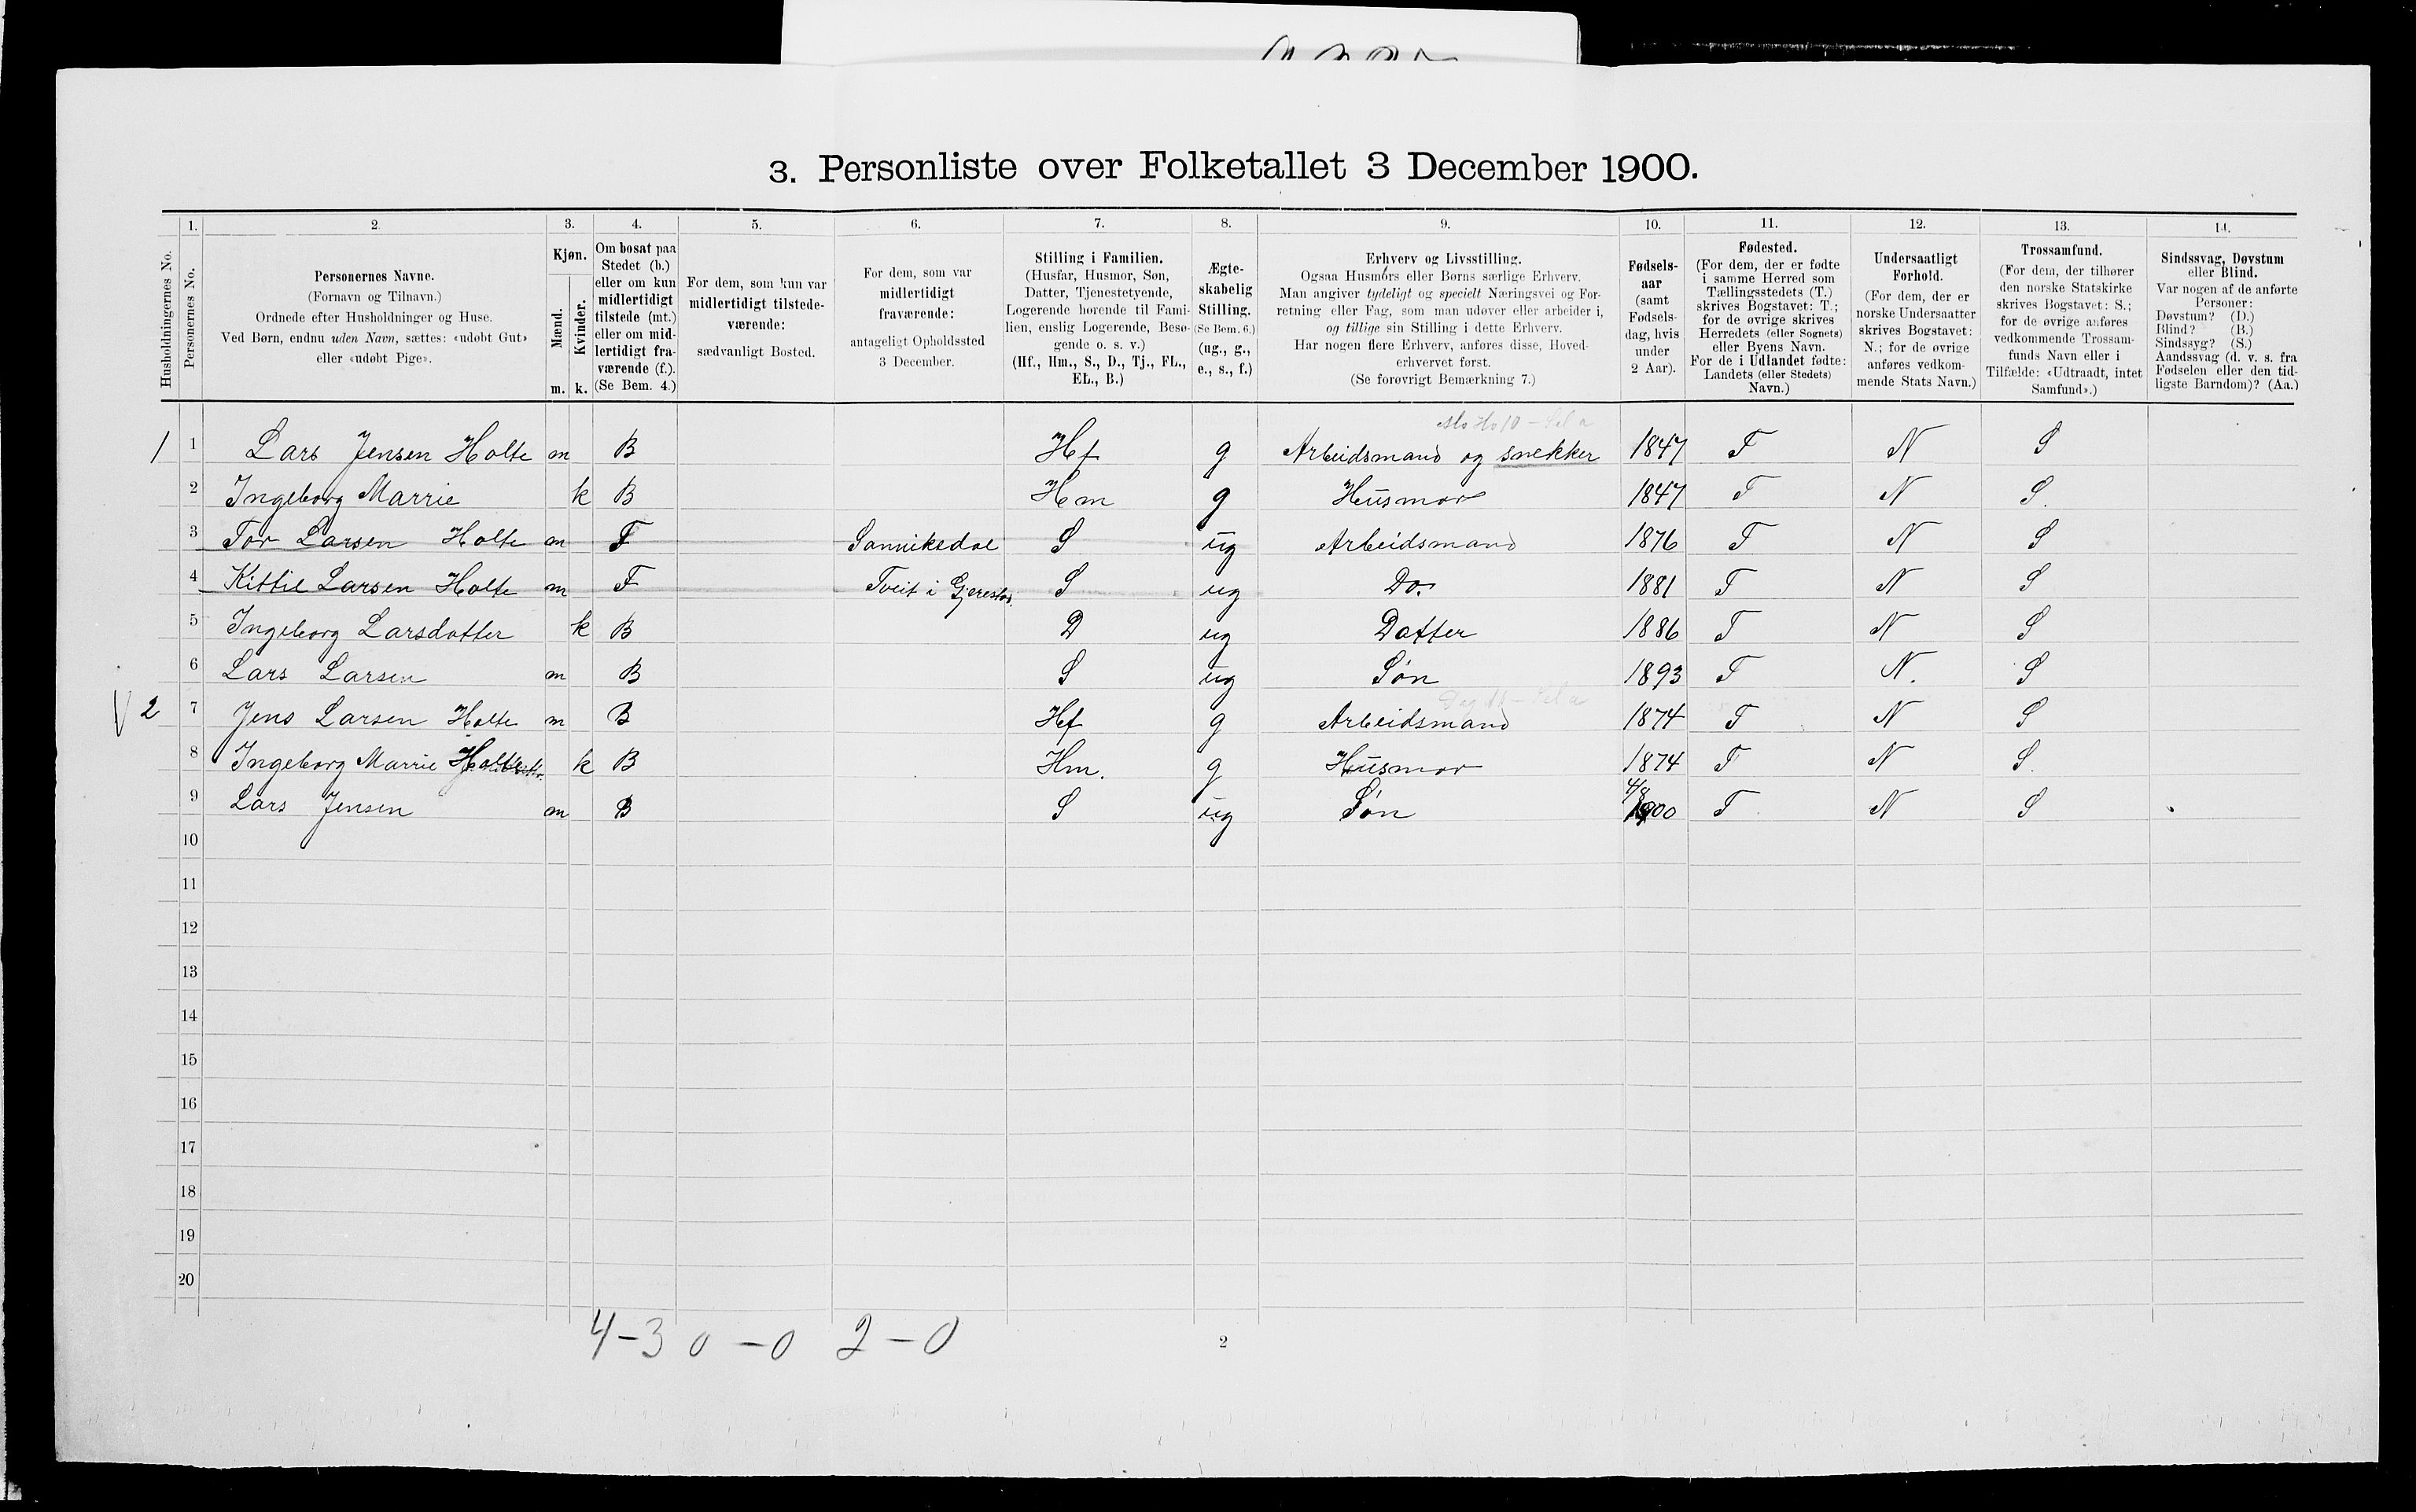 3. Personliste over Folketallet 3 December 1900.
1. 2. 3. 4. 5. 6. 7. 8. 9. 10. 11. 12. 13. 14.
Husholdningernes No.
Personernes No.
Personernes Navne.
(Fornavn og Tilnavn.)
Ordnede efter Husholdninger og Huse.
Ved Børn, endnu uden Navn, sættes: «udøbt Gut»
eller «udøbt Pige».
Kjøn.
Mænd.
Kvinder.
m. k.
Om bosat paa
Stedet (b.)
eller om kun
midlertidigt
tilstede (mt.)
eller om mid-
lertidigt fra-
værende (f.).
(Se Bem. 4.)
For dem, som kun var
midlertidigt tilstede-
værende:
sædvanligt Bosted.
For dem, som var
midlertidigt
fraværende:
antageligt Opholdssted
3 December.
Stilling i Familien.
(Husfar, Husmor, Søn,
Datter, Tjenestetyende,
Logerende hørende til Fami-
lien, enslig Logerende, Besø-
gende o. s. v.)
(Hf., Hm., S., D., Tj., FL.,
EL., B.)
Ægte-
skabelig
Stilling.
(Se Bem. 6.)
(ug., g.,
e., s., f.)
Erhverv og Livsstilling.
Ogsaa Husmors eller Børns særlige Erhverv.
Man angiver tydeligt og specielt Næringsvei og For-
retning eller Fag, som man udøver eller arbeider i,
og tillige sin Stilling i dette Erhverv.
Har nogen flere Erhverv, anføres disse, Hoved-
erhvervet først.
(Se forøvrigt Bemærkning 7.)
Fødsels-
aar
(samt
Fødsels-
dag, hvis
under
2 Aar).
Fødested.
(For dem, der er fødte
i samme Herred som
Tællingsstedets (T.)
skrives Bogstavet: T.;
for de øvrige skrives
Herredets (eller Sognets)
eller Byens Navn.
For de i Udlandet fødte:
Landets (eller Stedets)
Navn.)
Undersaatligt
Forhold.
(For dem, der er
norske Undersaatter
skrives Bogstavet:
N.; for de øvrige
anføres vedkom-
mende Stats Navn.)
Trossamfund.
(For dem, der tilhører
den norske Statskirke
skrives Bogstavet: S.;
for de øvrige anføres
vedkommende Trossam-
funds Navn eller i
Tilfælde: «Udtraadt, intet
Samfund».)
Sindssvag, Døvstum
eller Blind.
Var nogen af de anførte
Personer:
Døvstum? (D.)
Blind? (B.)
Sindssyg? (S.)
Aandssvag (d. v. s. fra
Fødselen eller den tid-
ligste Barndom)? (Aa.)
1 1 Lars Jensen Holte m B Hf g Arbeidsmand og snekker 1847 T N S
2 Ingeborg Marrie k B Hm g Husmor 1847 T N S.
3 Tor Larsen Holte m F Sannikedal S ug Arbeidsmand 1876 T N S
4 Kittil Larsen Holte m F Tveit i Gjerestad. S ug Do. 1881 T N S
5 Ingeborg Larsdatter k B D ug Datter 1886 T N S
6 Lars Larsen m B S ug Søn 1893 T N. S
2 7 Jens Larsen Holte m B Hf g Arbeidsmand 1874 T N S
8 Ingeborg Marrie Holte k B Hm. g Husmor 1874 T N S.
9 Lars Jensen m B S ug Søn 4/8 1900 T N S
10
11
12
13
14
15
16
17
18
19
20
4-3 0-0 2-0
2